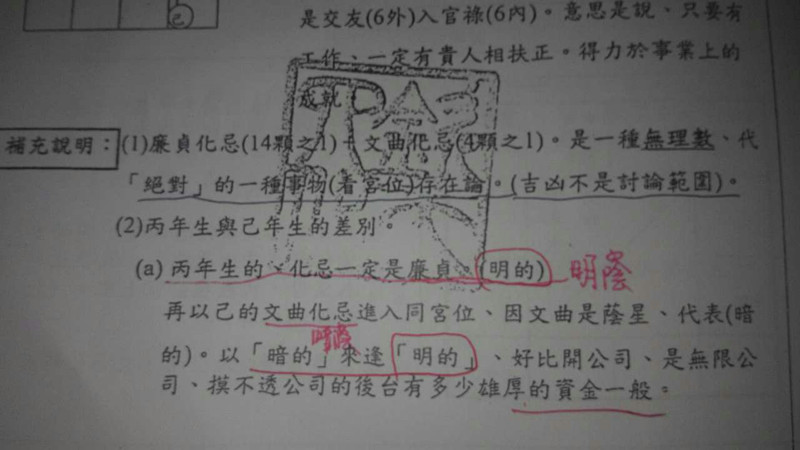 己
是交友(6外)入官祿(6內)。意思是說、只要有
工作、一定有貴人相扶正。得力於事業上的
成就。
補充說明：(1)廉貞化忌(14顆之1)+文曲化忌(4顆之1)。是一種無理數、代
「絕對」的一種事物(看宮位)存在論。(吉凶不是討論範圍)。
(2)丙年生與己年生的差別。
(a)丙年生的、化忌一定是廉貞。(明的) 明蔭
再以己的文曲化忌進入同宮位、因文曲是蔭星、代表(暗
暗蔭
的)。以「暗的」來逢「明的」、好比開公司、是無限公
司、摸不透公司的後台有多少雄厚的資金一般。